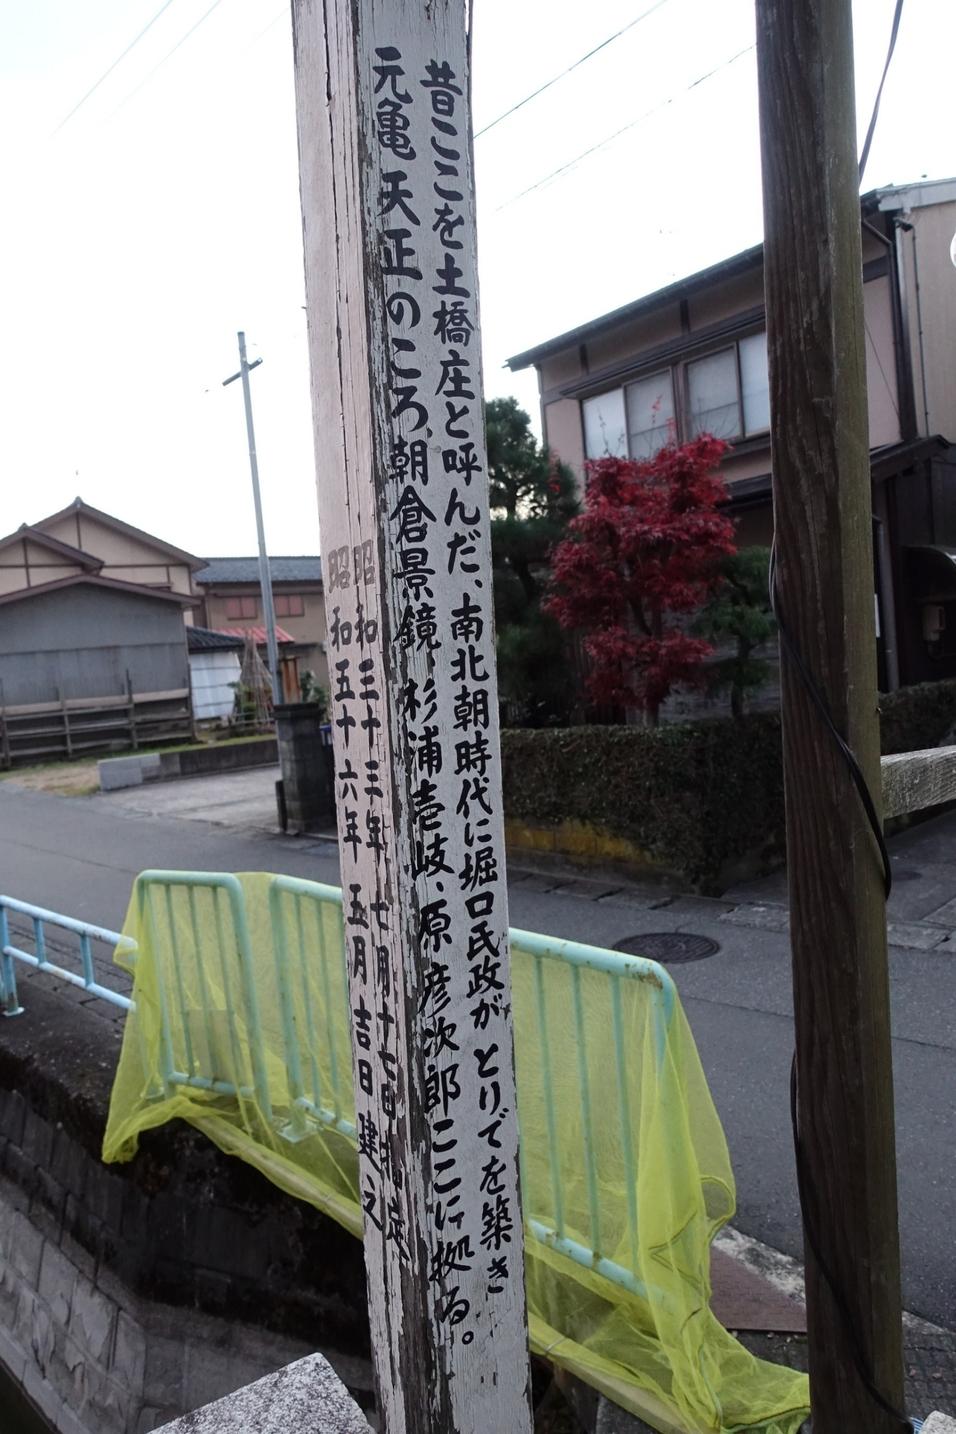 昔ここを土橋庄と呼んだ、南北朝時代に堀口氏政が とりでを築き
元亀 天正のころ、朝倉景鏡、杉浦壱岐、原彦次郎ここに拠る。
昭和三十三年 七月十七日指定
昭和五十六年 五月 吉日建之